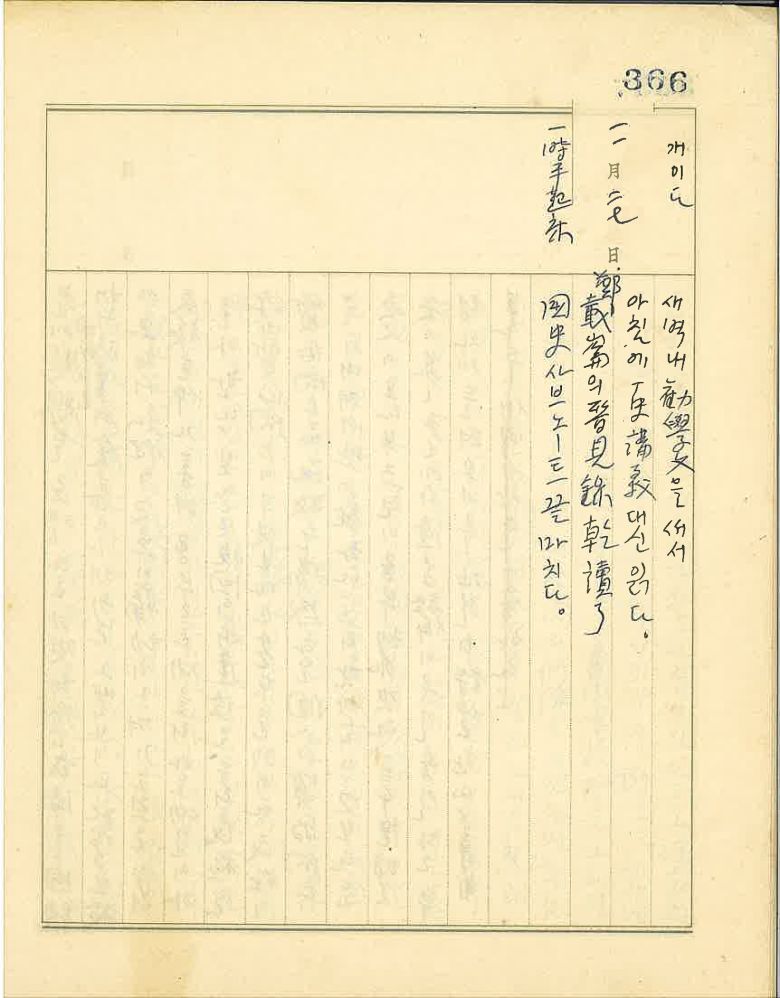 366
개이다
二月二七日
一時半起床
새벽내 勸學文을 써서
아침에 史講義 대신 읽다.
鄭載崙의 見錄 乾 讀了
國史 사브노ー트 끝마치다。